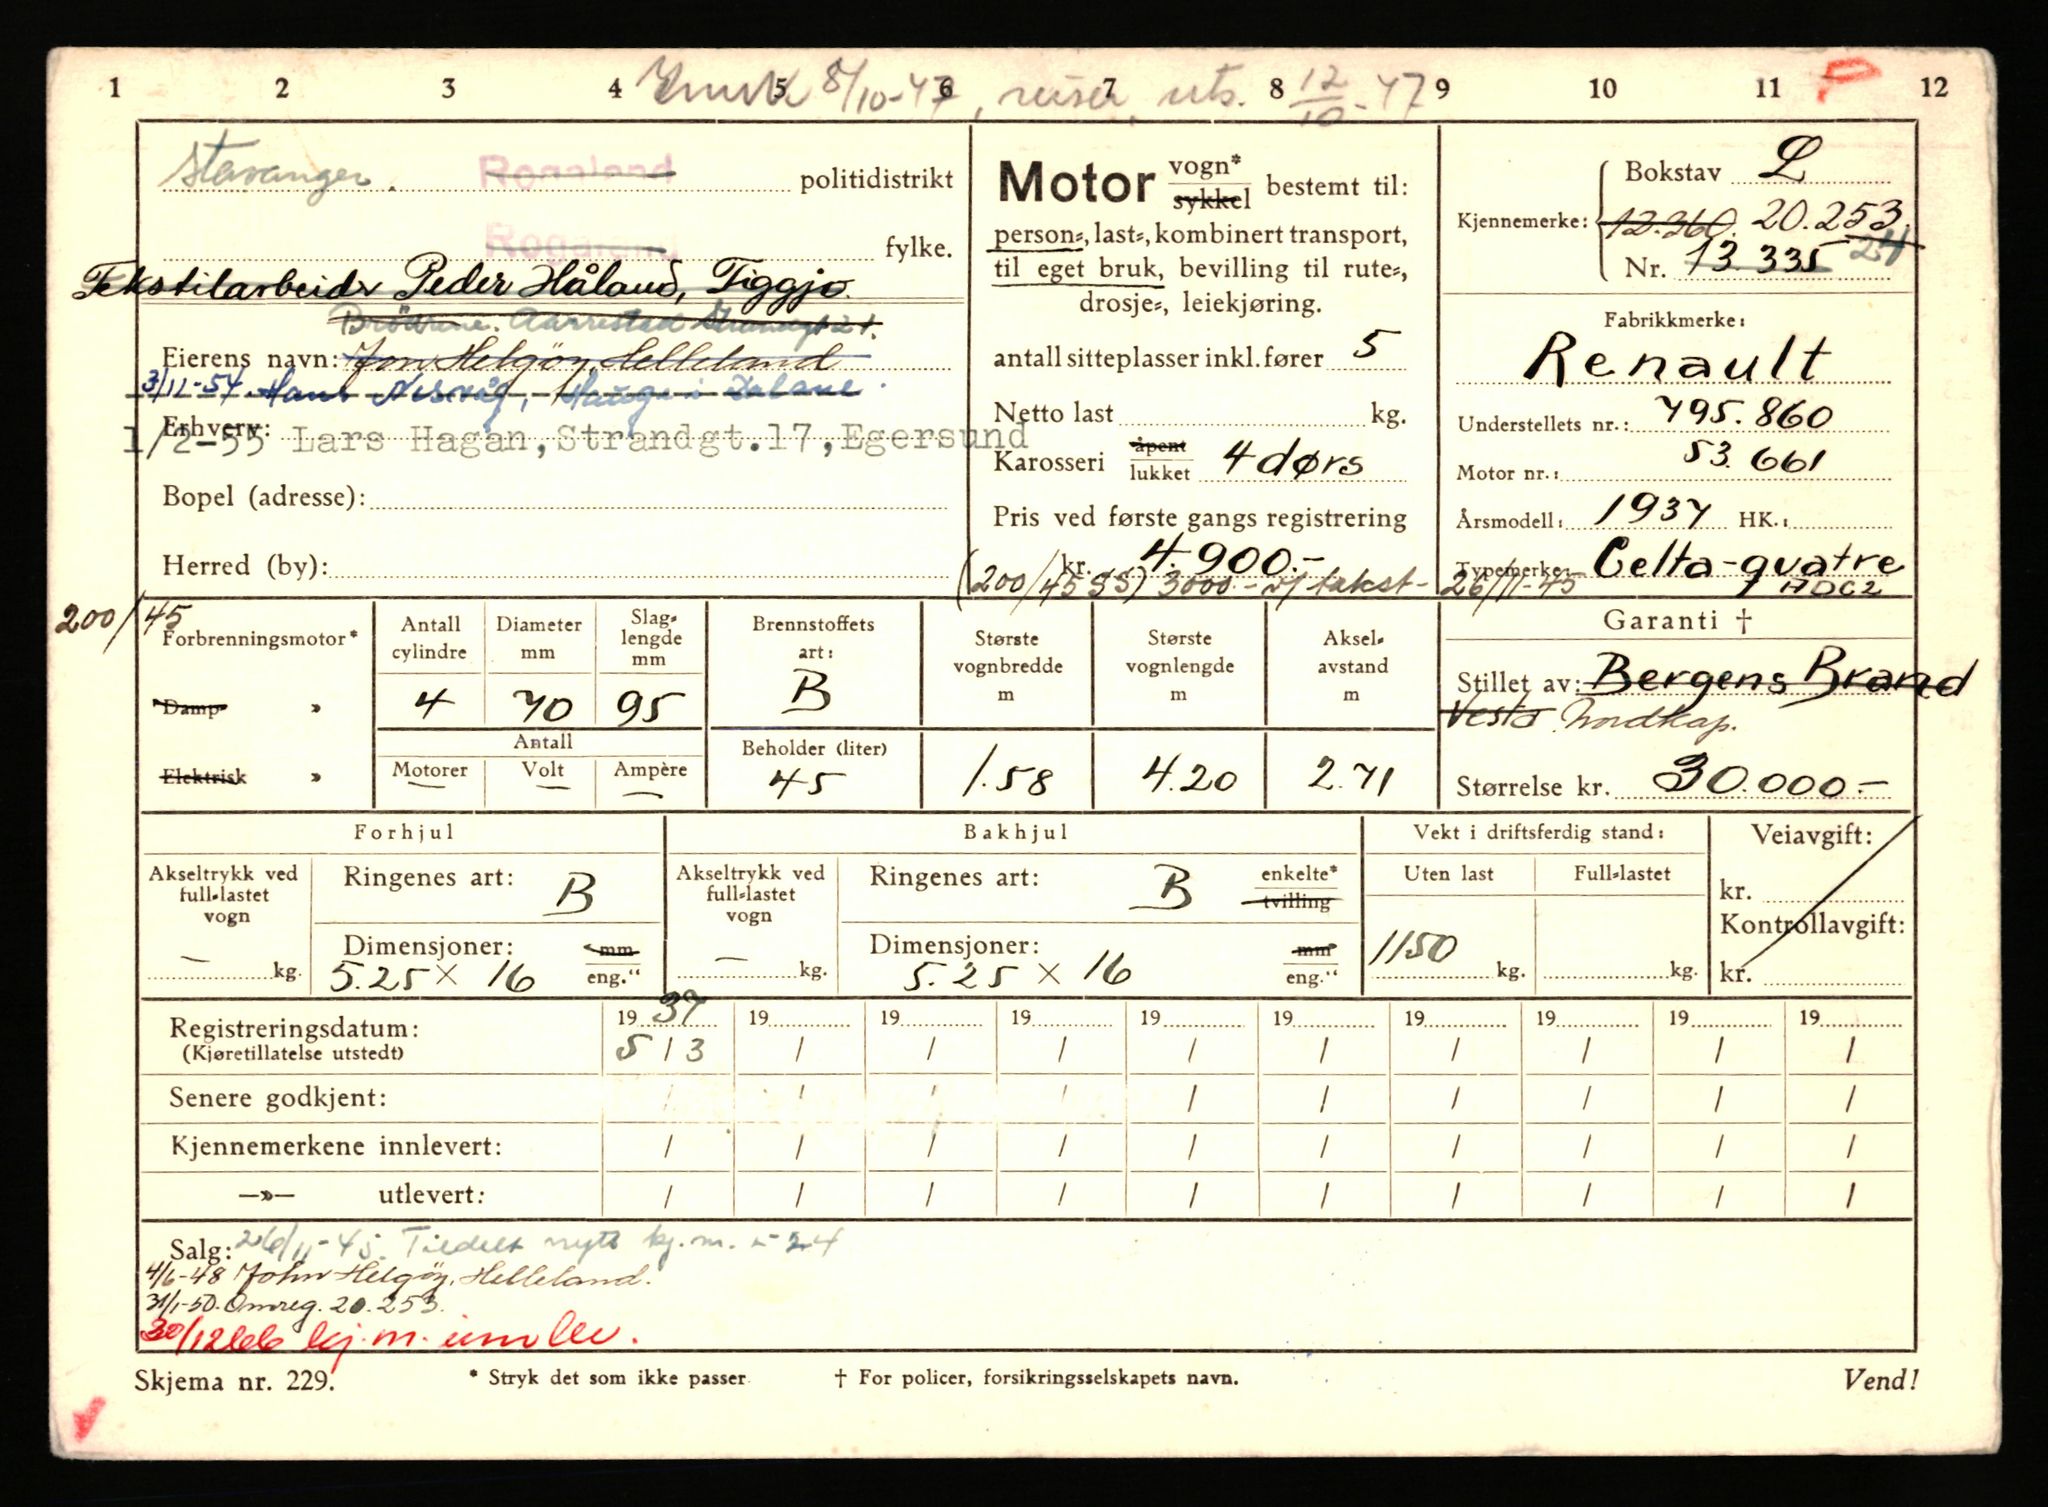 1 2 3 4 5 6 7 8 9 10 11 12
8/10-47, reiser, uts. 12/10-47
Stavanger. Rogaland politidistrikt
Rogaland fylke.
Tekstilarbeider Peder Håland, Figgjo.
Brödrene Aarrestad Strandgt 21.
Eierens navn: Jon Helgöy, Helleland
3/11-54 Hans, Hauge i Dalane.
Erhverv:
1/2-55 Lars Hagan, Strandgt.17, Egersund
Bopel (adresse):
Herred (by):
Motor vogn* sykkel bestemt til:
person-, last-, kombinert transport,
til eget bruk, bevilling til rute-,
drosje-, leiekjøring.
antall sitteplasser inkl. fører 5
Netto last kg.
Karosseri åpent lukket 4 dørs
Pris ved første gangs registrering
kr. 4.900.-
(200/45 SS) 3000.- v/ takst - 26/11-45
Kjennemerke: Bokstav L
12.360. 20.253.
Nr. 13.335 24
Fabrikkmerke:
Renault
Understellets nr.: 795.860
Motor nr.: 53.661
Årsmodell: 1937 HK.:
Typemerke: Celta-quatre
ADC2
200/45
Forbrenningsmotor*
Damp »
Elektrisk »
Antall cylindre 4
Diameter mm 70
Slag-lengde mm 95
Antall
Motorer — Volt — Ampère —
Brennstoffets art: B
Beholder (liter) 45
Største vognbredde m 1.58
Største vognlengde m 4.20
Aksel-avstand m 2.71
Garanti †
Stillet av: Bergens Brand
Vesta Nordkap.
Størrelse kr. 30.000.-
Forhjul
Akseltrykk ved full-lastet vogn
— kg.
Ringenes art: B
Dimensjoner: mm
5.25 × 16 eng."
Bakhjul
Akseltrykk ved full-lastet vogn
— kg.
Ringenes art: B enkelte* tvilling
Dimensjoner: mm
5.25 × 16 eng."
Vekt i driftsferdig stand:
Uten last Full-lastet
1150 kg. kg.
Veiavgift:
kr.
Kontrollavgift:
kr.
Registreringsdatum: 19 37 19 19 19 19 19 19 19 19 19
(Kjøretillatelse utstedt) 5 / 3 / / / / / / / / /
Senere godkjent: / / / / / / / / / /
Kjennemerkene innlevert: / / / / / / / / / /
—»— utlevert: / / / / / / / / / /
Salg: 26/11-45. Tildelt nytt kj.m. L-24
4/6-48 John Helgöy, Helleland.
31/1-50. Omreg. 20.253.
30/12 66 kj. m. innlev.
Skjema nr. 229. * Stryk det som ikke passer † For policer, forsikringsselskapets navn. Vend!